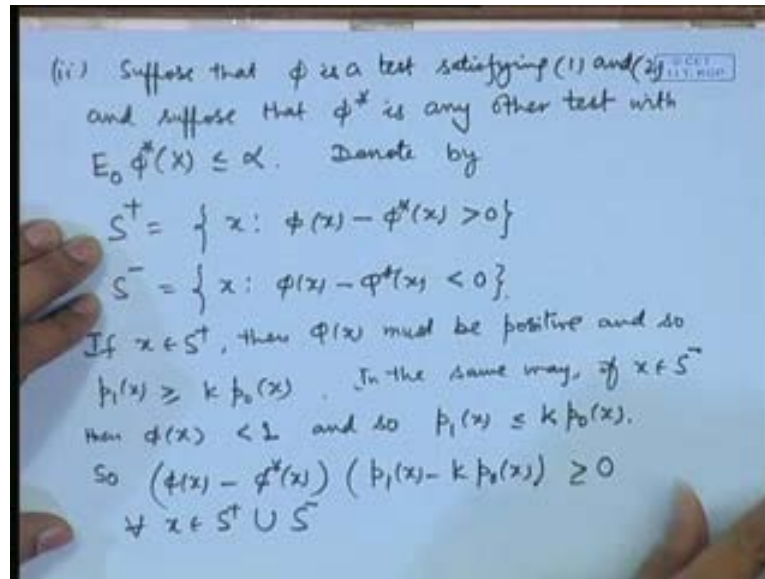 (ii) Suppose that φ is a test satisfying (1) and (2)
and suppose that φ* is any other test with
E₀ φ*(X) ≤ α. Denote by
S⁺ = { x : φ(x) − φ*(x) > 0}
S⁻ = { x : φ(x) − φ*(x) < 0}.
If x ∈ S⁺, then φ(x) must be positive and so
p₁(x) ≥ k p₀(x). In the same way, if x ∈ S⁻
then φ(x) < 1 and so p₁(x) ≤ k p₀(x).
So (φ(x) − φ*(x)) (p₁(x) − k p₀(x)) ≥ 0
∀ x ∈ S⁺ ∪ S⁻